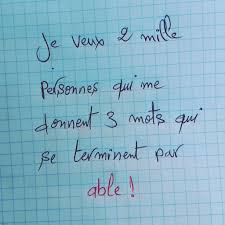 Je veux 2 mille
personnes qui me
donnent 3 mots qui
se terminent par
able !